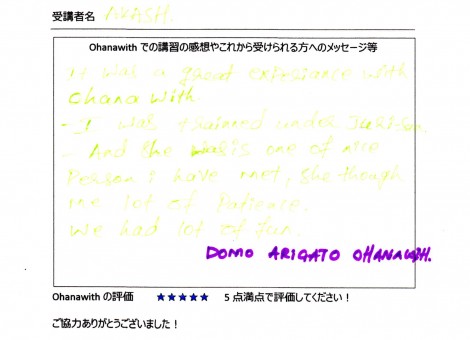 受講者名 AKASH.
Ohanawith での講習の感想やこれから受けられる方へのメッセージ等
it was a great experiance with
Ohana with.
- I was trainned under
- And she was is one of nice
Person i have met, she though
me lot of Patience.
We had lot of fun.
DOMO ARIGATO OHANAWITH.
Ohanawith の評価 ★★★★★ 5 点満点で評価してください！
ご協力ありがとうございました！